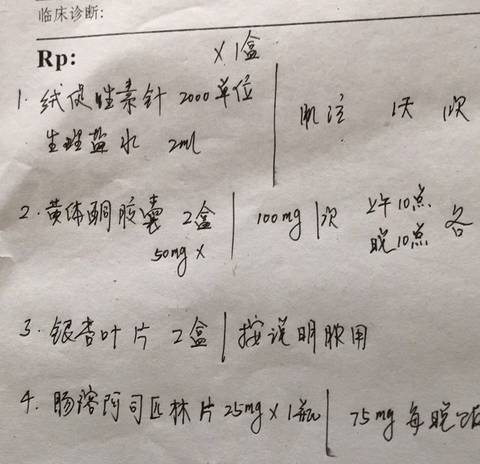 临床诊断:
Rp:
X 1盒
1. 绒促性素针 2000单位
生理盐水 2ml
肌注 1天 1次
2. 黄体酮胶囊 2盒
50mg X
100mg 1次 上午10点
晚10点 各
3. 银杏叶片 2盒 按说明服用
4. 肠溶阿司匹林片 25mg X 1瓶 75mg 每晚